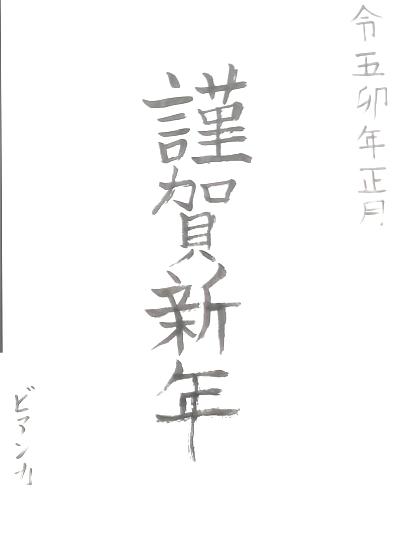 令五卯年正月
謹賀新年
ビアンカ